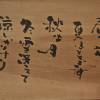 春は花
夏ほととぎす
秋は月
冬雪さえて
涼しかりけり